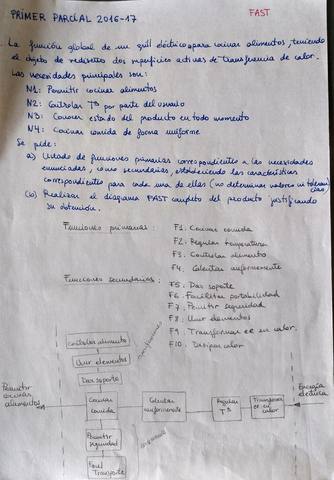 PRIMER PARCIAL 2016-17
FAST
La función global de un grill eléctrico para cocinar alimentos, teniendo
el objeto de rediseño dos superficies activas de transferencia de calor.
Las necesidades principales son:
N1: Permitir cocinar alimentos
N2: Controlar Tª por parte del usuario
N3: Conocer estado del producto en todo momento
N4: Cocinar comida de forma uniforme
Se pide:
a) Listado de funciones primarias correspondientes a las necesidades
enunciadas, como secundarias, estableciendo las características
correspondientes para cada una de ellas (no determinar valores ni toleran
cias)
(b) Realizar el diagrama FAST completo del producto justificando
su obtención.
Funciones primarias
F1. Cocinar comida
F2. Regular temperatura
F3. Controlar alimento
F4. Calentar uniformemente
Funciones secundarias:
F5. Dar soporte
F6. Facilitar portabilidad
F7. Permitir seguridad
F8. Unir elementos
F9. Transformar ee en calor.
F10. Disipar calor
Controlar alimento
Unir elementos
Dar soporte
Permitir
cocinar
alimentos
Cocinar
comida
Calentar
uniformemente
Regular
Tª
Transformar
ee en
calor
Energía
eléctrica
Permitir
seguridad
Transporte